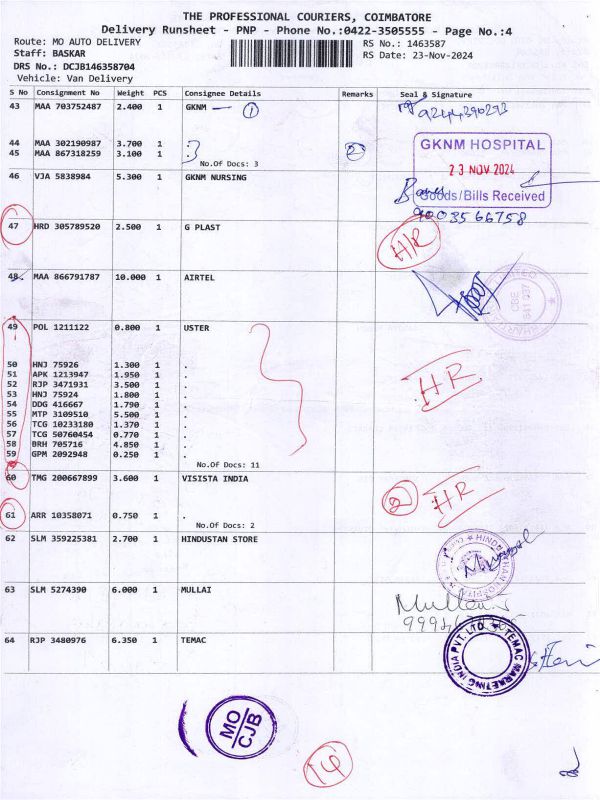 THE PROFESSIONAL COURIERS, COIMBATORE
Delivery Runsheet - PNP - Phone No.:0422-3505555 - Page No.:4
Route: MO AUTO DELIVERY RS No.: 1463587
Staff: BASKAR RS Date: 23-Nov-2024
DRS No.: DCJB146358704
Vehicle: Van Delivery
S No Consignment No Weight PCS Consignee Details Remarks Seal & Signature
43 MAA 703752487 2.400 1 GKNM 1 9244390293
44 MAA 302190987 3.700 1 .
45 MAA 867318259 3.100 1 . 2
No.Of Docs: 3
GKNM HOSPITAL
23 NOV 2024
Goods/Bills Received
46 VJA 5838984 5.300 1 GKNM NURSING
9003566758
47 HRD 305789520 2.500 1 G PLAST H/R
48 MAA 866791787 10.000 1 AIRTEL
49 POL 1211122 0.800 1 USTER
50 HNJ 75926 1.300 1 .
51 APK 1213947 1.950 1 . HR
52 RJP 3471931 3.500 1 .
53 HNJ 75924 1.800 1 .
54 DDG 416667 1.790 1 .
55 MTP 3109510 5.500 1 .
56 TCG 10233180 1.370 1 .
57 TCG 50760454 0.770 1 .
58 BRH 705716 4.850 1 .
59 GPM 2092948 0.250 1 .
No.Of Docs: 11
60 TMG 200667899 3.600 1 VISISTA INDIA
2 HR
61 ARR 10358071 0.750 1 .
No.Of Docs: 2
62 SLM 359225381 2.700 1 HINDUSTAN STORE
63 SLM 5274390 6.000 1 MULLAI
64 RJP 3480976 6.350 1 TEMAC
TEMAC MARKETING INDIA PVT. LTD.
MO
CJB
14